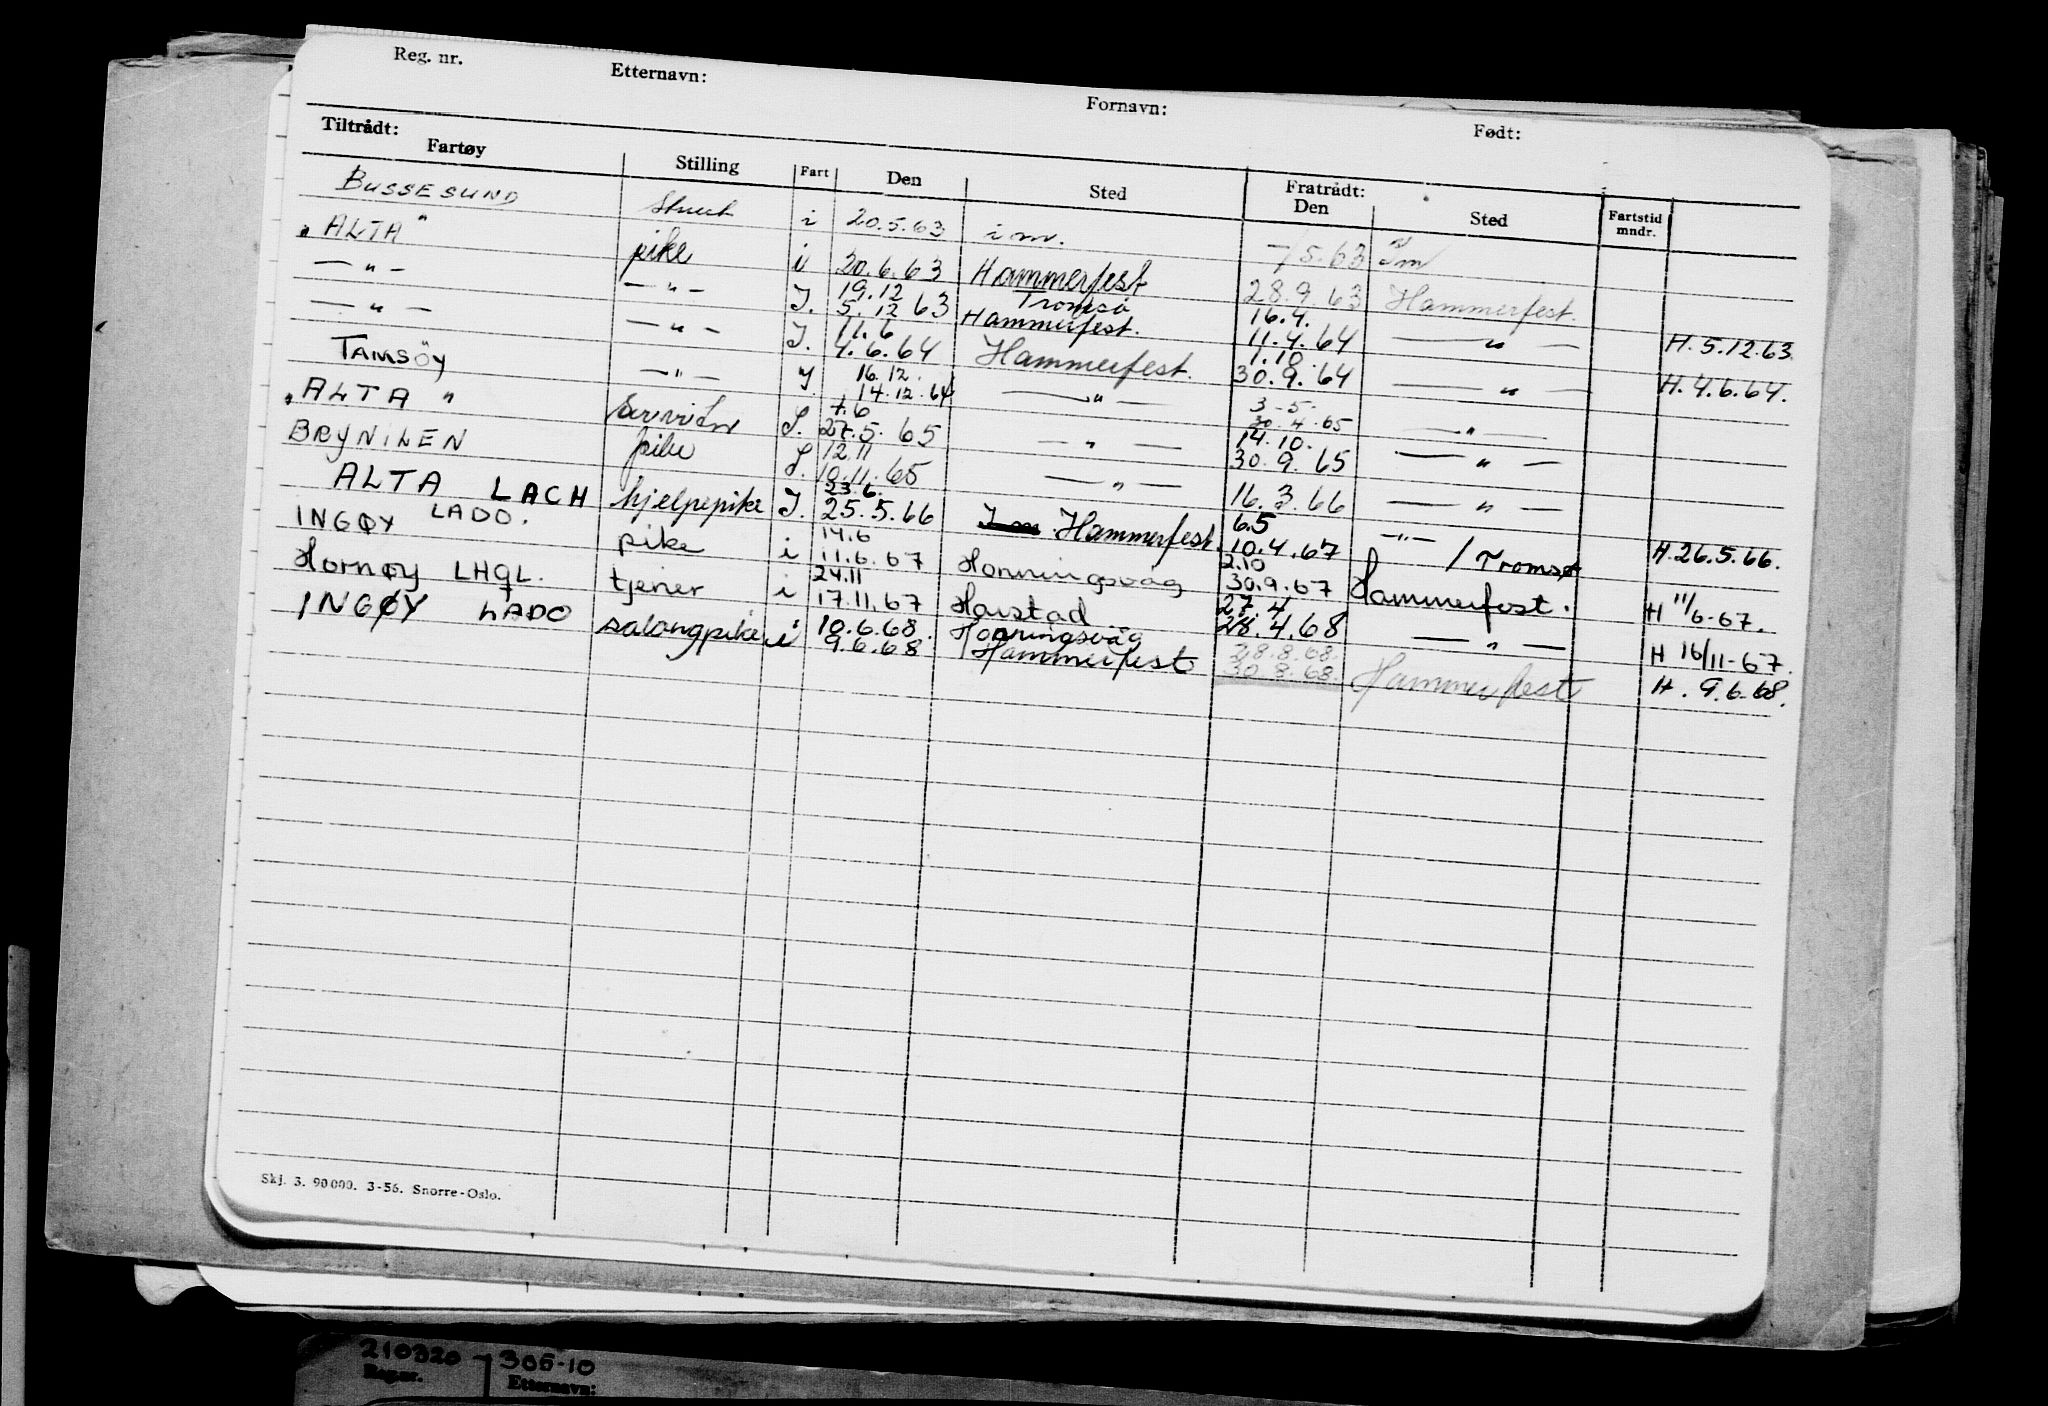 Reg. nr. Etternavn: Fornavn: Født:
Tiltrådt: Fratrådt:
Fartøy Stilling Fart Den Sted Den Sted Fartstid mndr.
BUSSESUND i 20.5.63 i m. -/5.63 Im
"ALTA" pike i 20.6.63 Hammerfest 28.9.63 Hammerfest.
19.12 Tromsø 16.4.
— " — — " — I. 5.12 63 Hammerfest. 11.4.64 — " — H. 5.12.63
11.6 1.10
— " — — " — I. 4.6.64 Hammerfest. 30.9.64 — " — H. 4.6.64.
16.12. 3-5.
TAMSÖY — " — I. 14.12.64 — " — 30.4.65 — " —
1.6 14.10.
"ALTA" I. 27.5.65 — " — 30.9.65 — " —
12.11
BRYNILEN pike I. 10.11.65 — " — 16.3.66 — " —
23.6. 6.5
ALTA LACH hjelpepike I. 25.5.66 Hammerfest. 10.4.67 — " — / Tromsø H. 26.5.66.
14.6 2.10
INGØY LADO. pike i 11.6.67 Honningsvåg 30.9.67 Hammerfest. H 11/6-67.
24.11 27.4
Hornøy LHQL. tjener i 17.11.67 Harstad 28.4.68 — " — H 16/11-67.
10.6.68. Honningsvåg 28.8.68.
INGØY LADO salongpike i 9.6.68 Hammerfest 30.8.68. Hammerfest H. 9.6.68.
Skj. 3. 90 000. 3-56. Snorre-Oslo.
210320 - 305-10
Reg.nr. Etternavn: